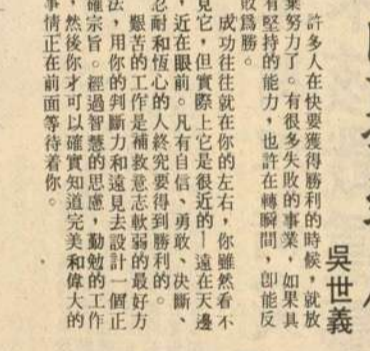 吳世義
許多人在快要獲得勝利的時候，就放
棄努力了。有很多失敗的事業，如果具
有堅持的能力，也許在轉瞬間，卽能反
敗爲勝。
成功往往就在你的左右，你雖然看不
見它，但實際上它是很近的—遠在天邊
，近在眼前。凡有自信、勇敢、決斷、
忍耐和恆心的人終究要得到勝利的。
艱苦的工作是補救意志軟弱的最好方
法，用你的判斷力和遠見去設計一個正
確宗旨。經過智慧的思慮，勤勉的工作
，然後你才可以確實知道完美和偉大的
事情正在前面等待着你。